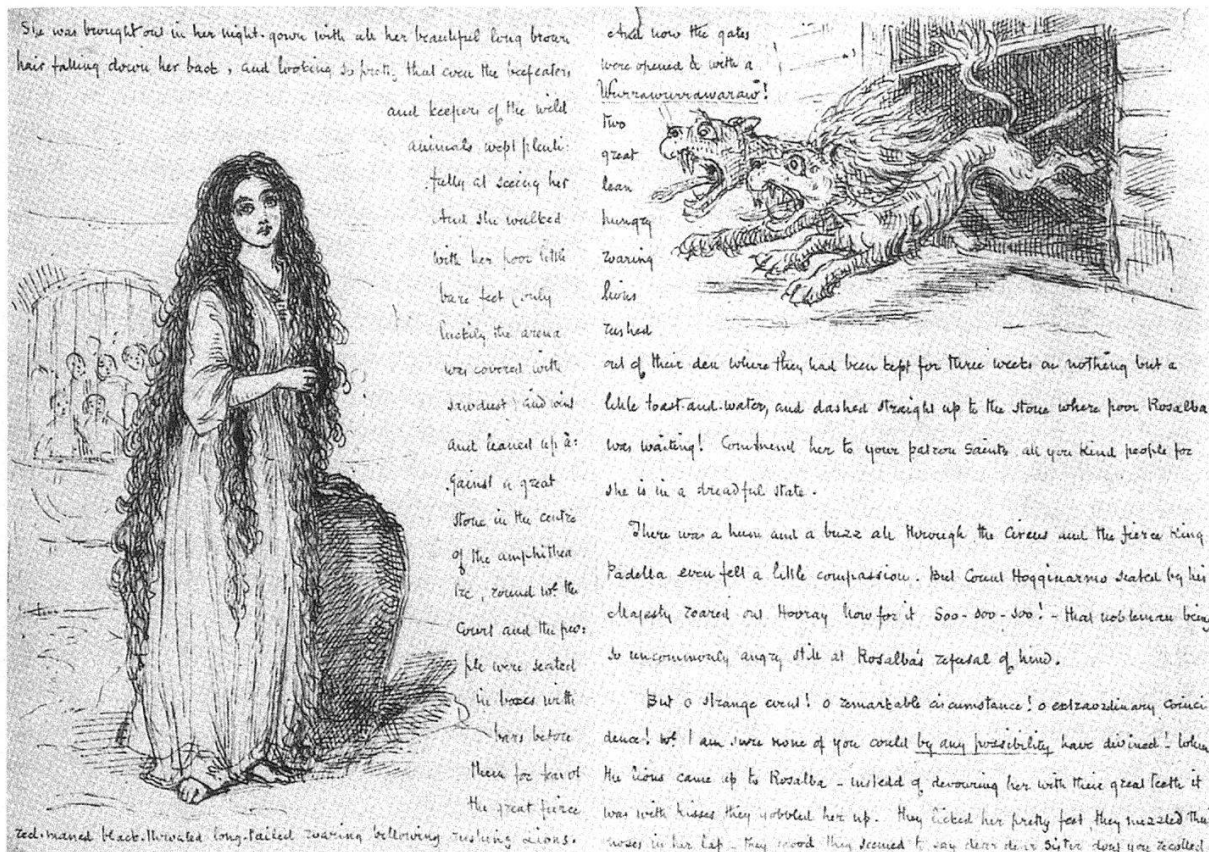 She was brought out in her night-gown with all her beautiful long brown
hair falling down her back, and looking so pretty that even the beefeaters
and keepers of the wild
animals wept plenti:
:fully at seeing her
And she walked
with her poor little
bare feet (only
luckily the arena
was covered with
sawdust) and went
and leaned up a:
:gainst a great
stone in the centre
of the amphithea
tre, round wh. the
Court and the peo:
ple were seated
in boxes with
bars before
them for fear of
the great fierce
red-maned black-throated long-tailed roaring bellowing rushing Lions.
And now the gates
were opened & with a
Wurrawurrawaraw!
two
great
lean
hungry
roaring
lions
rushed
out of their den where they had been kept for three weeks on nothing but a
little toast-and-water, and dashed straight up to the stone where poor Rosalba
was waiting! Commend her to your patron Saints all you kind people for
she is in a dreadful state.
There was a hum and a buzz all through the Circus and the fierce King
Padella even felt a little compassion. But Count Hogginarmo seated by his
Majesty roared out Hooray Now for it Soo-soo-soo! - that nobleman being
so uncommonly angry still at Rosalba's refusal of him.
But o strange event! o remarkable circumstance! o extraordinary coinci
dence! wh. I am sure none of you could by any possibility have divined! When
the lions came up to Rosalba - instead of devouring her with their great teeth it
was with kisses they gobbled her up. They licked her pretty feet, they nuzzled their
noses in her lap - they mooed they seemed to say dear dear Sister dont you recollect